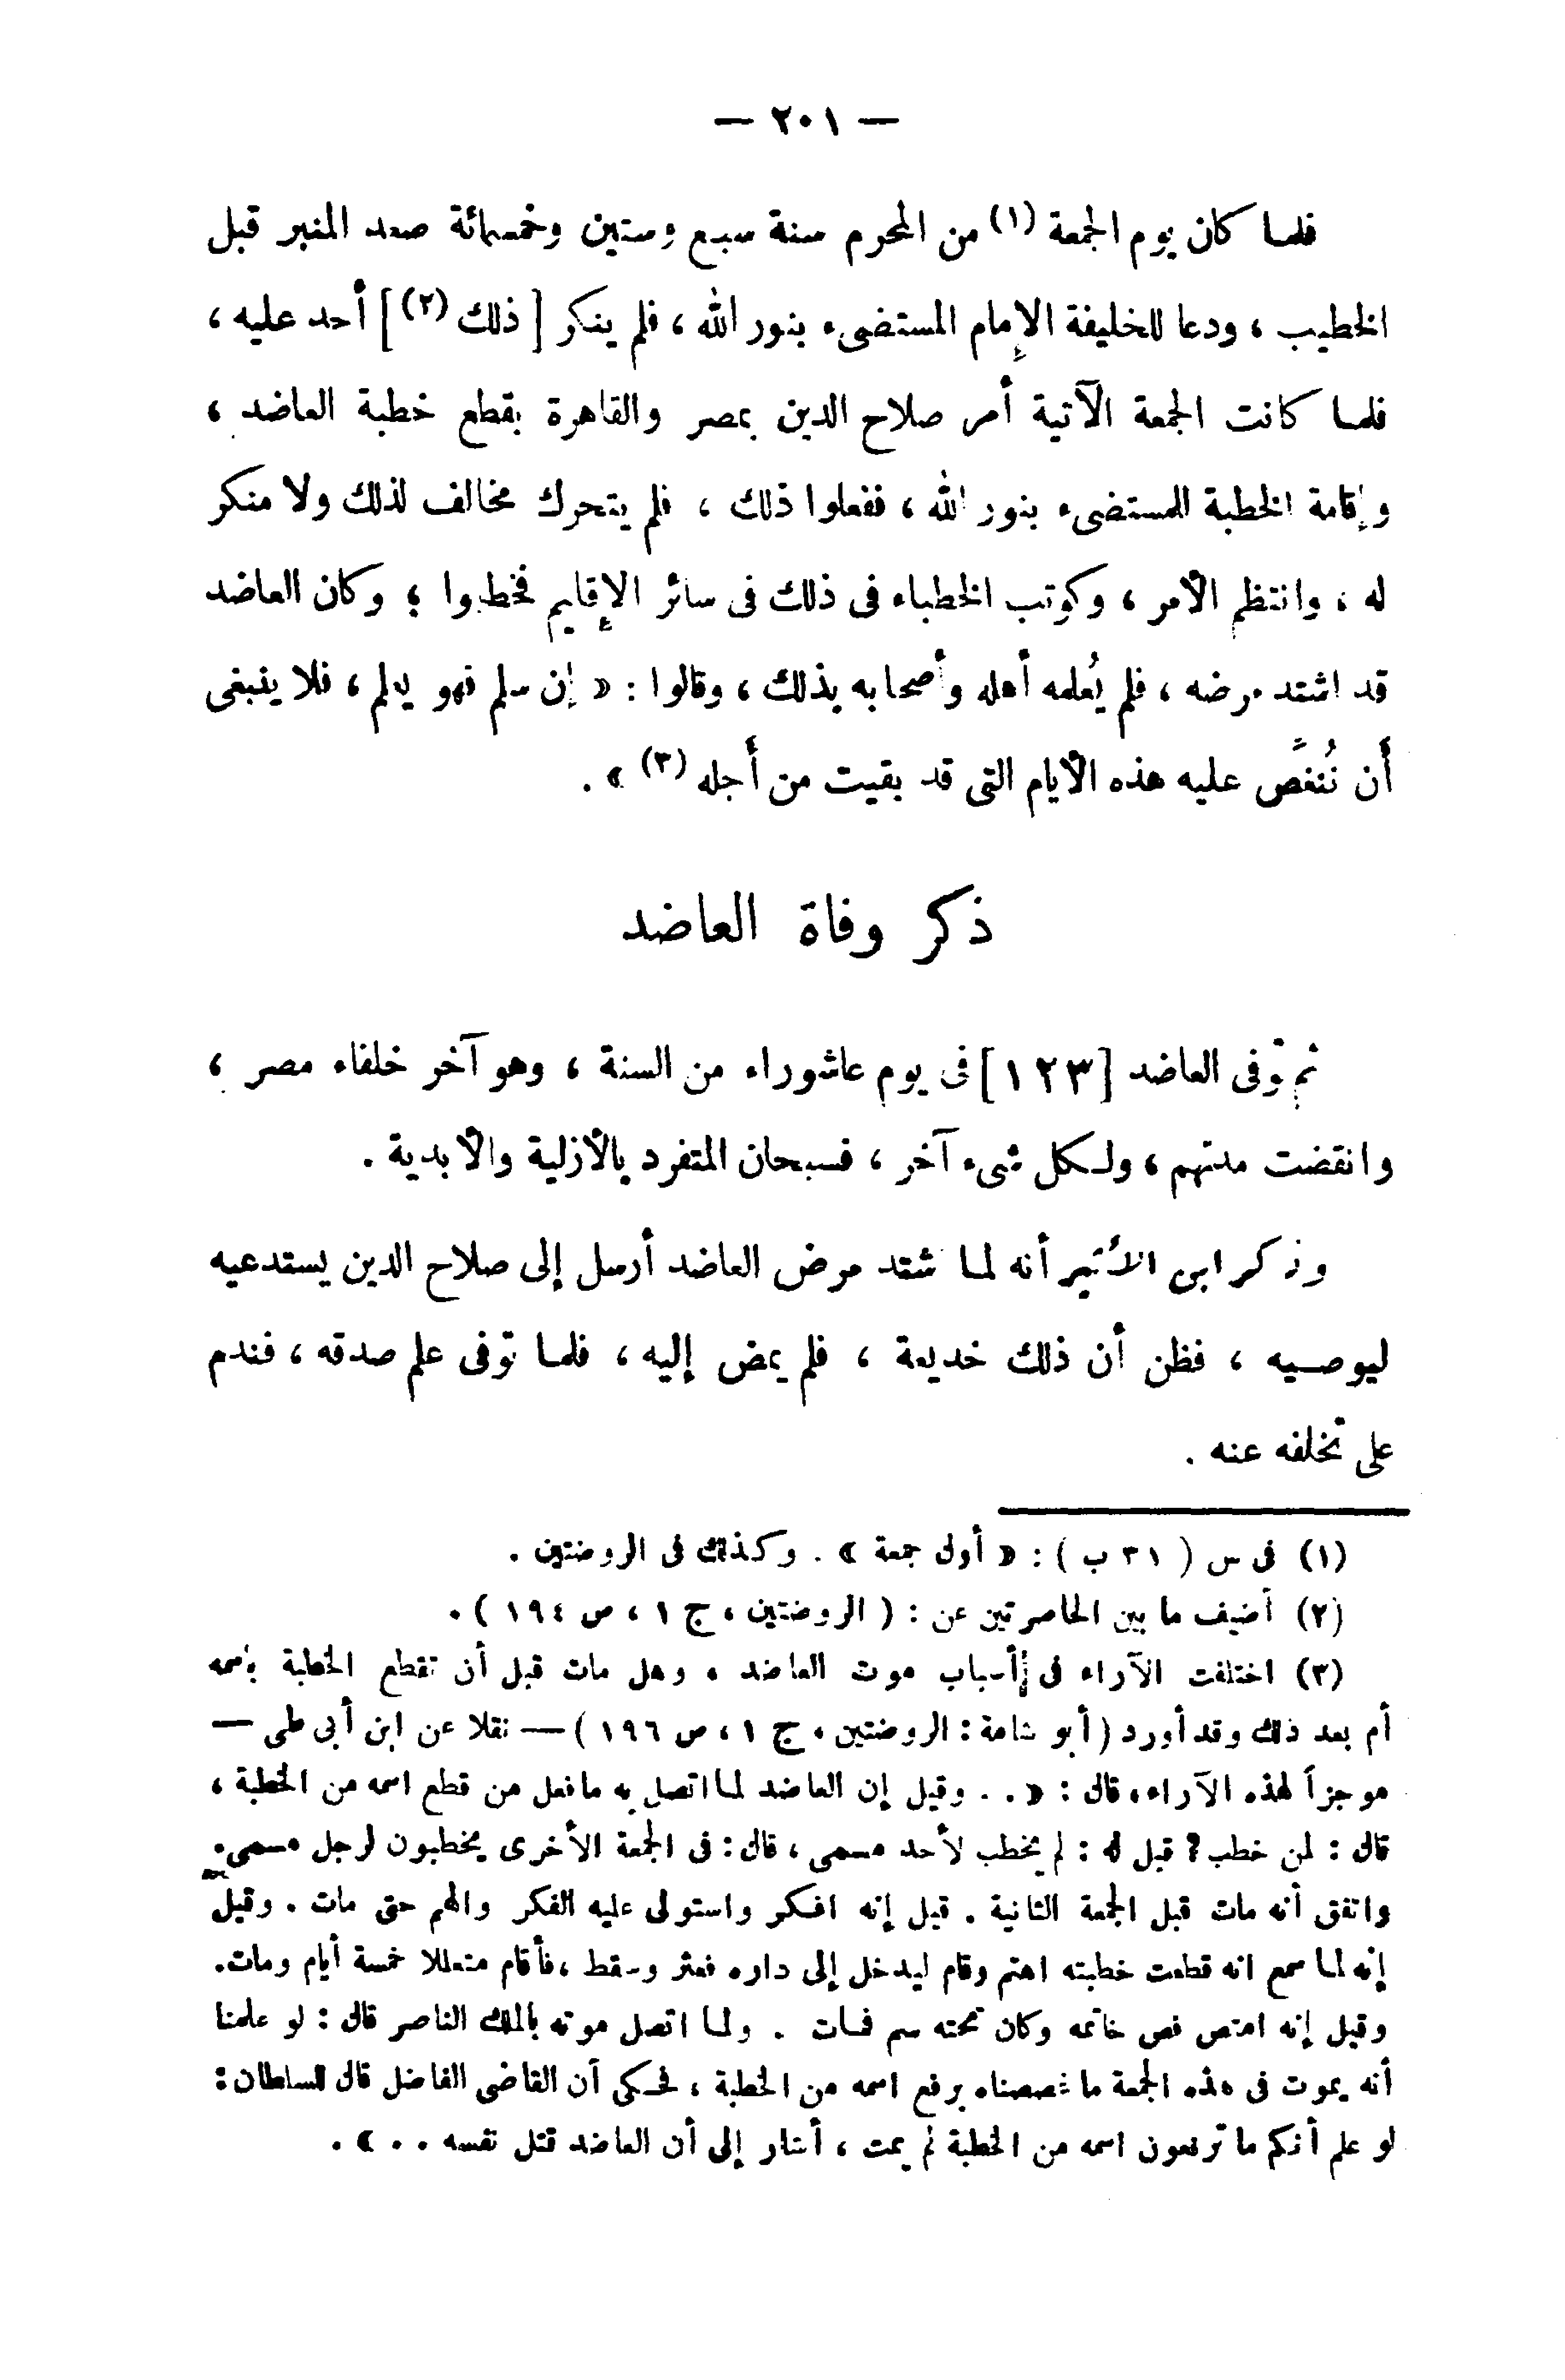 — ٢٠١ —
فلما كان يوم الجمعة (١) من المحرم سنة سبع وستين وخمسمائة صعد المنبر قبل
الخطيب ، ودعا للخليفة الإمام المستضىء بنور الله ، فلم ينكر [ ذلك (٢) ] أحد عليه ،
فلما كانت الجمعة الآتية أمر صلاح الدين بمصر والقاهرة بقطع خطبة العاضد ،
وإقامة الخطبة للمستضىء بنور الله ، ففعلوا ذلك ، فلم يتحرك مخالف لذلك ولا منكر
له ، وانتظم الأمر ، وكوتب الخطباء فى ذلك فى سائر الإقليم فخطبوا ؛ وكان العاضد
قد اشتد مرضه ، فلم يُعلمه أهله وأصحابه بذلك ، وقالوا : « إن سلم فهو يعلم ، فلا ينبغى
أَن نُنَغِّص عليه هذه الأيام التى قد بقيت من أَجله (٣) » .
ذكر وفاة العاضد
ثم توفى العاضد [ ١٢٣ ] فى يوم عاشوراء من السنة ، وهو آخر خلفاء مصر ،
وانقضت مدتهم ، ولكل شىء آخر ، فسبحان المتفرد بالأزلية والأبدية .
وذكر ابن الأثير أنه لما اشتد مرض العاضد أرسل إلى صلاح الدين يستدعيه
ليوصيه ، فظن أن ذلك خديعة ، فلم يمض إليه ، فلما توفى علم صدقه ، فندم
على تخلفه عنه .
(١) فى س ( ٣١ ب ) : « أول جمعة » . وكذلك فى الروضتين .
(٢) أضيف ما بين الحاصرتين عن : ( الروضتين ، ج ١ ، ص ١٩٤ ) .
(٣) اختلفت الآراء فى أسباب موت العاضد ، وهل مات قبل أن تقطع الخطبة باسمه
أم بعد ذلك وقد أورد ( أبو شامة : الروضتين ، ج ١ ، ص ١٩٦ ) — نقلا عن ابن أبى طى —
موجزاً لهذه الآراء ، قال : « . . وقيل إن العاضد لما اتصل به ما فعل من قطع اسمه من الخطبة ،
قال : لمن خطب ؟ قيل له : لم يخطب لأحد مسمى ، قال : فى الجمعة الأخرى يخطبون لرجل مسمى .
واتفق أنه مات قبل الجمعة الثانية . قيل إنه افكر واستولى عليه الفكر والهم حتى مات . وقيل
إنه لما سمع انه قطعت خطبته اهتم وقام ليدخل إلى داره فعثر وسقط ، فأقام متعللا خمسة أيام ومات .
وقيل إنه امتص فص خاتمه وكان تحته سم فمات . ولما اتصل موته بالملك الناصر قال : لو علمنا
أنه يموت فى هذه الجمعة ما غصصناه برفع اسمه من الخطبة ، فحكى أن القاضى الفاضل قال للسلطان :
لو علم أنكم ما ترفعون اسمه من الخطبة لم يمت ، أشار إلى أن العاضد قتل نفسه . . » .